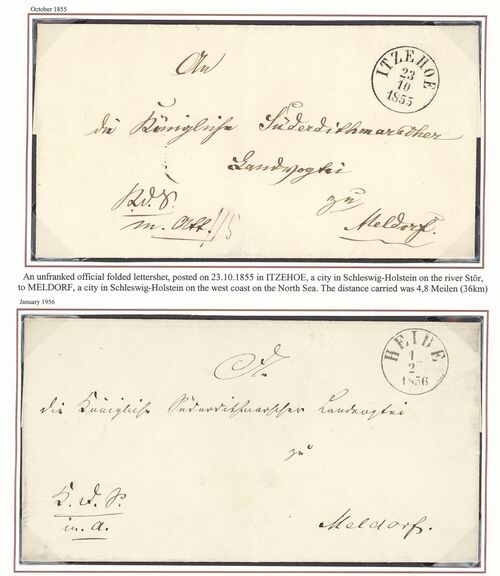 October 1855
An
ITZEHOE
23
10
1855
die Königliche Süderdithmarscher
Landvogtei
zu
K.d.S.
m. Att.
Meldorf.
An unfranked official folded lettershet, posted on 23.10.1855 in ITZEHOE, a city in Schleswig-Holstein on the river Stör,
to MELDORF, a city in Schleswig-Holstein on the west coast on the North Sea. The distance carried was 4,8 Meilen (36km)
January 1956
HEIDE
1
2
1856
An
die Königliche Süderdithmarscher Landvogtei
zu
K. d. S.
m. a.
Meldorf.